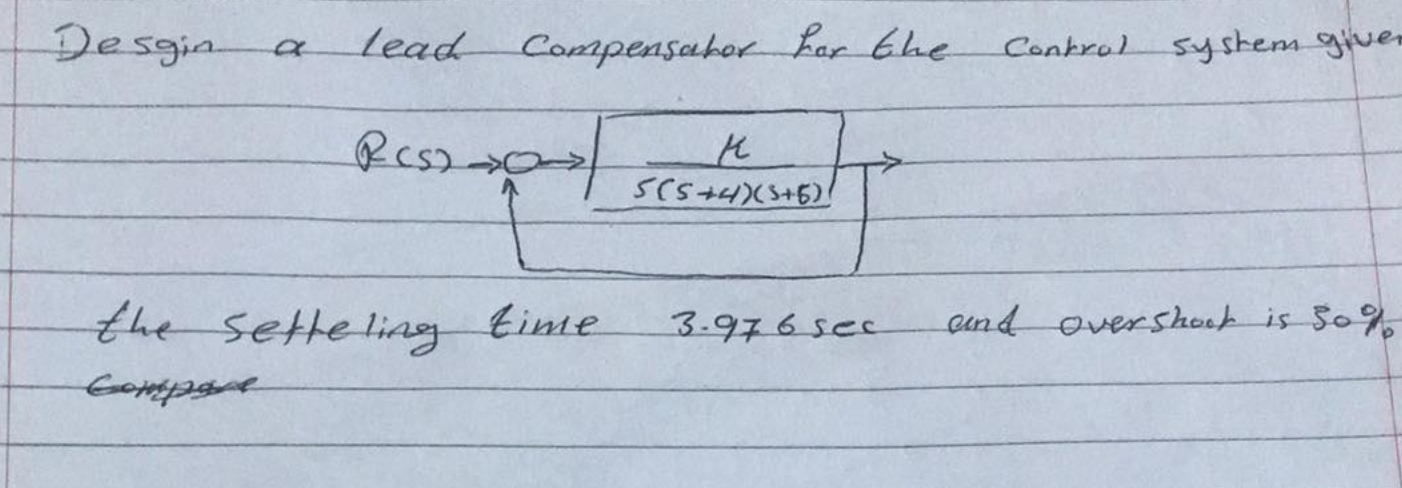 Desgin a lead Compensator for the Control system given
R(s) K
s(s+4)(s+6)
the setteling time 3.976 sec and overshoot is 30%